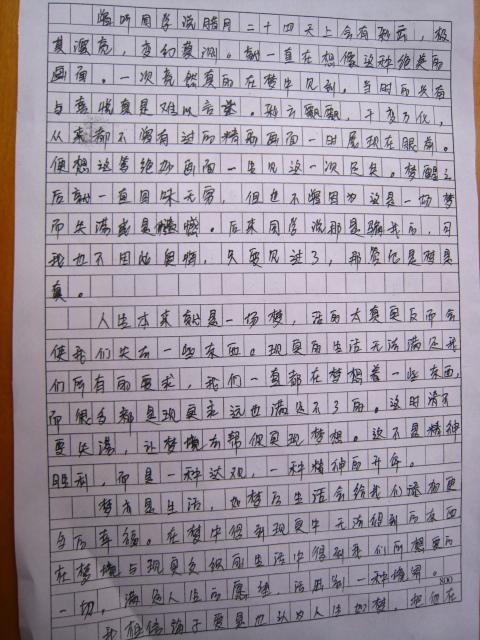 曾听同学说腊月二十四天上会有彩云，极
其漂亮，变幻莫测。就一直在想像这种绝美的
画面。一次竟然真的在梦中见到。当时的兴奋
与喜悦真是难以言喻。彩云飘飘，千变万化，
从来都不曾有过的精彩画面一时展现在眼前。
便想这等绝妙画面一生见这一次足矣。梦醒之
后就一直回味无穷，但也不曾因为这是一场梦
而失落或是遗憾。后来同学说那是骗我的，可
我也不因此懊恼，只要见过了，那管它是梦是
真。
人生本来就是一场梦，活的太真实反而会
使我们失去一些东西。现实的生活无法满足我
们所有的要求，我们一直都在梦想着一些东西，
而很多都是现实永远也满足不了的。这时请不
要失落，让梦境去帮你实现梦想。这不是精神
胜利，而是一种达观，一种精神的升华。
梦亦是生活，如梦的生活会给我们添加更
多的幸福。在梦中得到现实中无法得到的东西
在梦境与现实交织的生活中得到我们所想要的
一切，满足人生的愿望，活出另一种境界。
800
我相信庄子要是也认为人生如梦，把他在